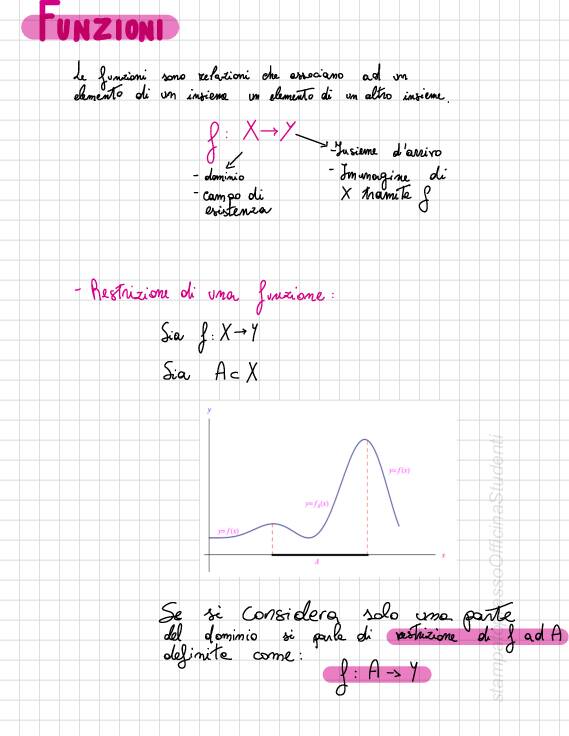 FUNZIONI
Le funzioni sono relazioni che associano ad un
elemento di un insieme un elemento di un altro insieme.
f: X→Y
- dominio
- campo di
esistenza
- Insieme d'arrivo
- Immagine di
X tramite f
- Restrizione di una funzione:
Sia f: X→Y
Sia A⊂X
y
y=f(x)
y=f_A(x)
y=f(x)
A
x
Se si considera solo una parte
del dominio si parla di restrizione di f ad A
definita come:
f: A→Y
OfficinaStudenti